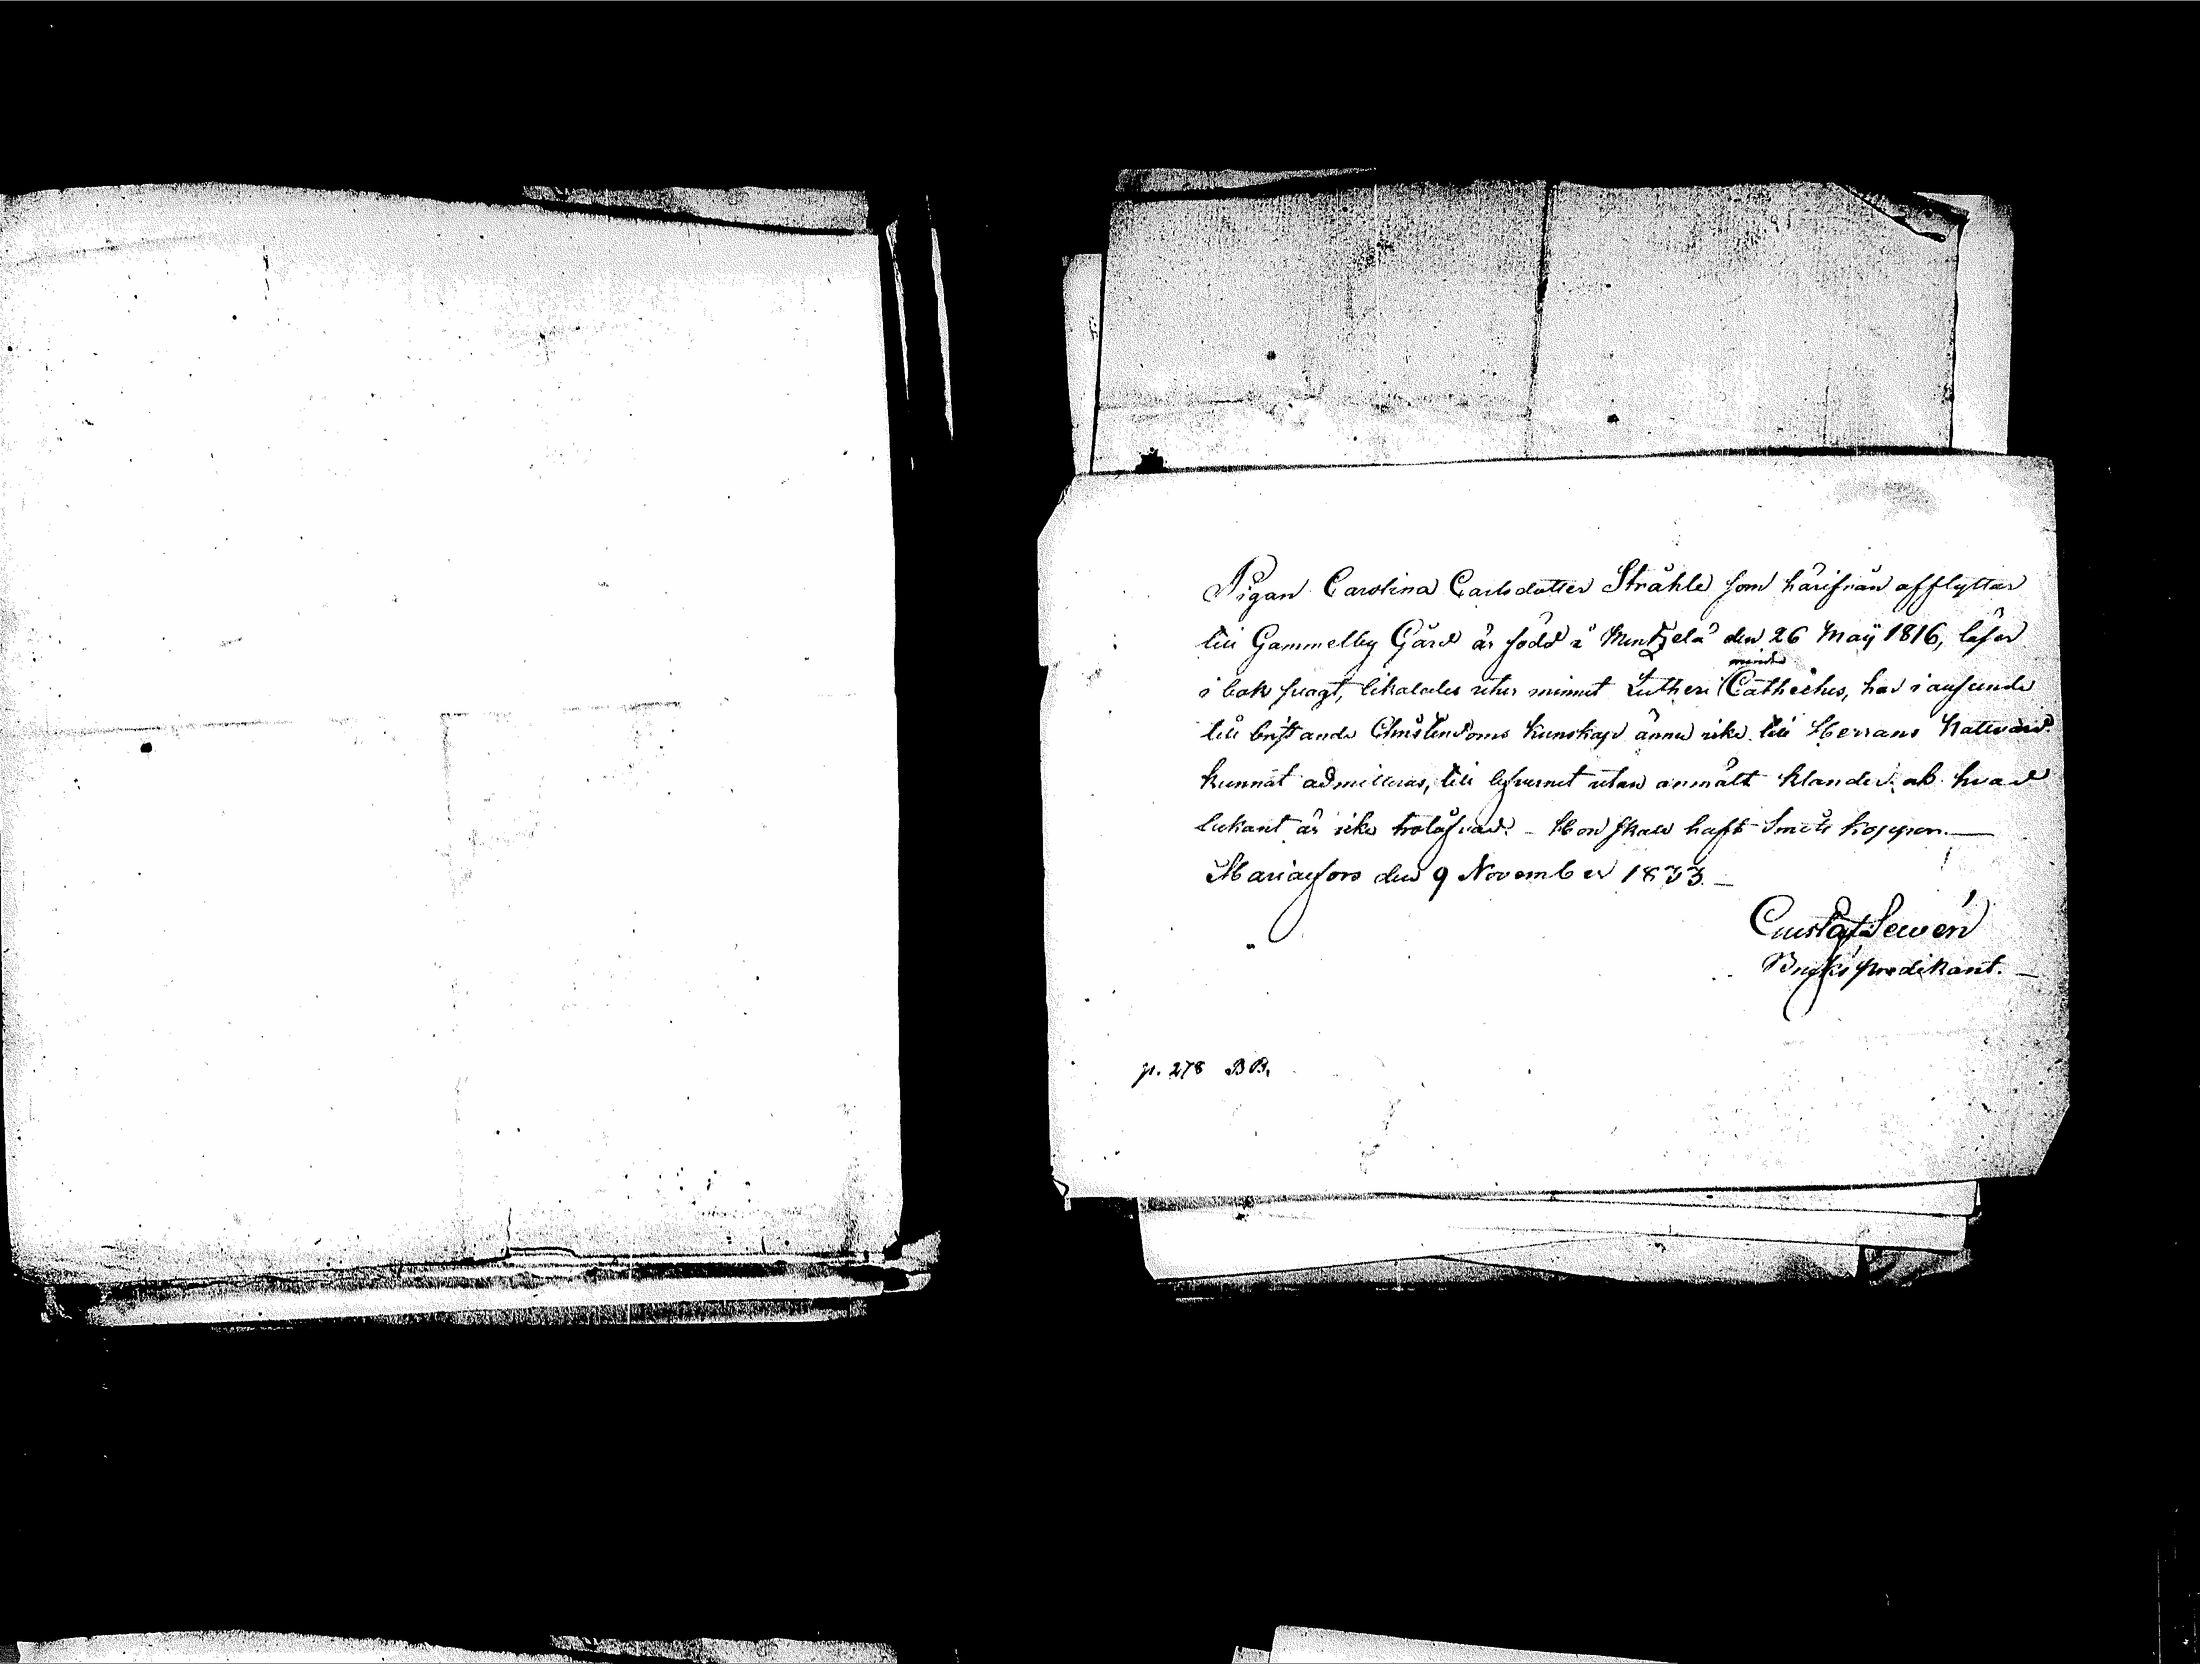 Pigan Carolina Carlsdotter Stråhle som härifrån afflyttar
till Gammelby Gård är född i Mentzelä den 26 Maÿ 1816, läser
i bok svagt, likaledes utur minnet Lutheri mindre Catheches, har i anseende
till bristande Christendoms kunskap ännu icke till Herrans Nattvard
kunnat admitteras, till lefvernet utan anmält klander; ock hvad
bekant är icke trolåfvad. – Hon skall haft Smitt koppor. —
Mariæfors den 9 November 1833. —
Gustaf Lewén
Bruks predikant. —
p. 278 BB.